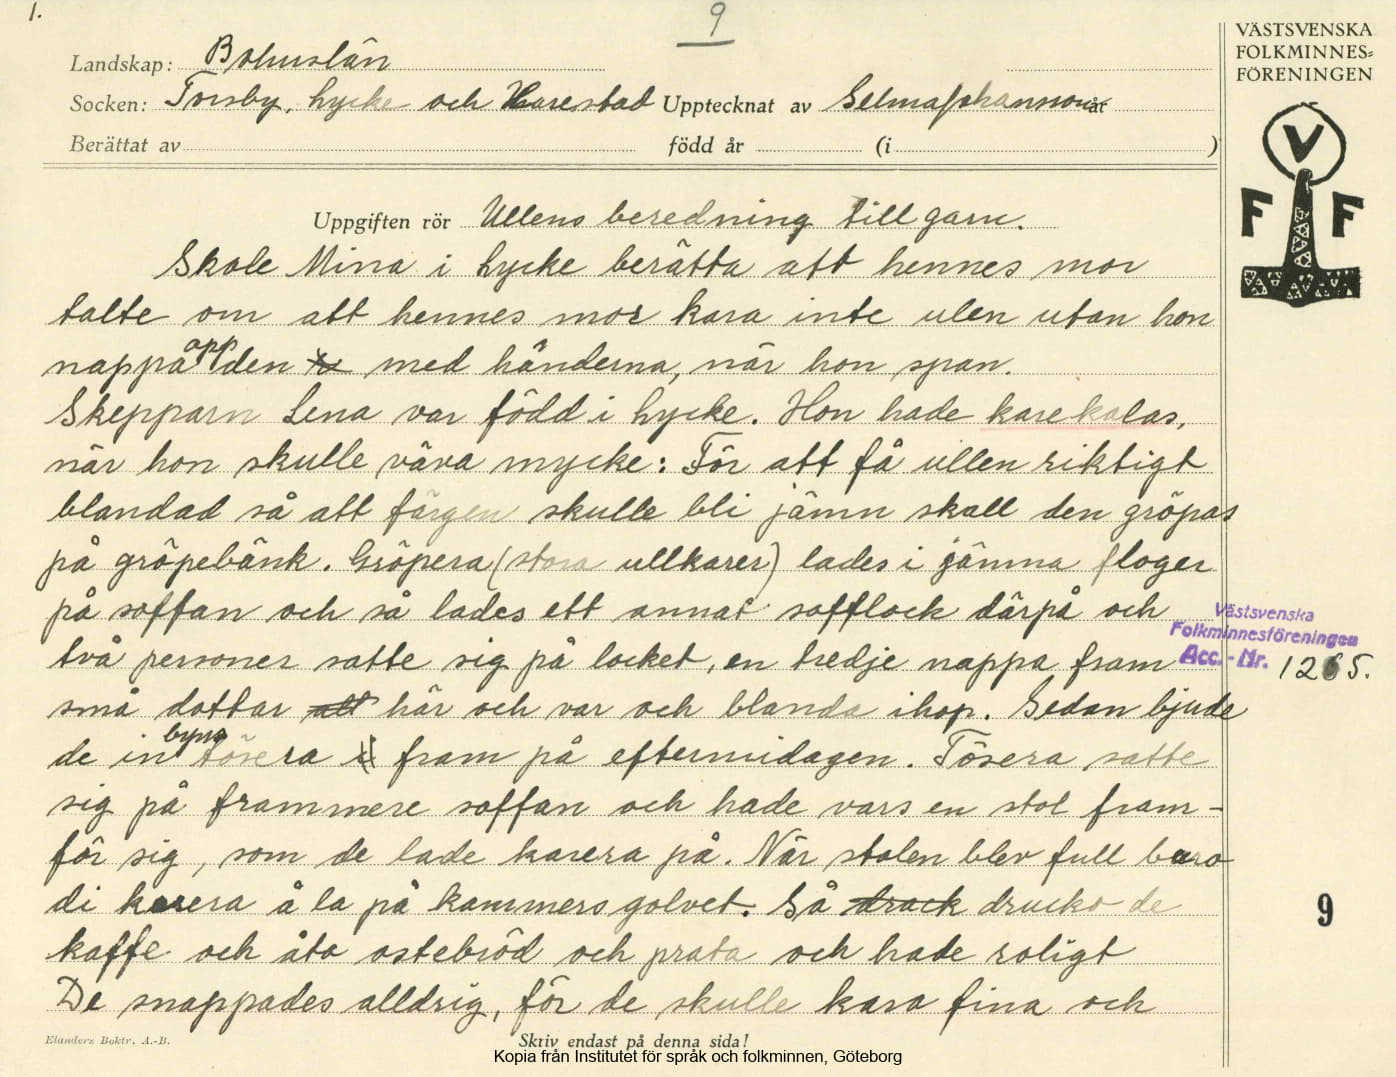 1.
9
VÄSTSVENSKA
FOLKMINNES=
FÖRENINGEN
Landskap: Bohuslän
Socken: Torsby, Lycke och Harestad Upptecknat av Selma Johansson åt
Berättat av född år (i )
V
F F
Uppgiften rör Ullens beredning till garn.
Skole Mina i Lycke berätta att hennes mor
talte om att hennes mor kara inte ulen utan hon
nappå opp den med händerna, när hon span.
Skepparn Lena var född i Lycke. Hon hade karekalas,
när hon skulle väva mycke: För att få ullen riktigt
blandad så att färgen skulle bli jämn skall den gröpas
på gröpebänk. Gröpera (stora ullkarer) lades i jämna floger
på soffan och så lades ett annat sofflock därpå och
två personer satte sig på locket, en tredje nappa fram
små dottar att här och var och blanda ihop. Sedan bjude
de in byns tösera fram på eftermidagen. Tösera satte
sig på frammere soffan och hade vars en stol fram-
för sig, som de lade karera på. När stolen blev full baro
di karera å la på kammersgolvet. Så drack drucko de
kaffe och åto ostebröd och prata och hade roligt
De snappades alldrig, för de skulle kara fina och
Västsvenska
Folkminnesföreningen
Acc.-Nr. 1265.
9
Elanders Boktr. A.-B.
Skriv endast på denna sida!
Kopia från Institutet för språk och folkminnen, Göteborg